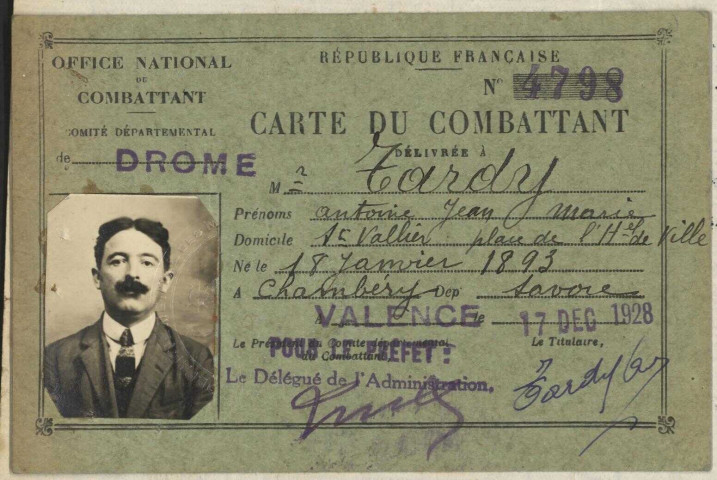 OFFICE NATIONAL
DU
COMBATTANT
COMITÉ DÉPARTEMENTAL
de DROME
RÉPUBLIQUE FRANÇAISE
N° 4798
CARTE DU COMBATTANT
DÉLIVRÉE À
Mr Tardy
Prénoms antoine Jean Marie
Domicile St Vallier place de l'Hel de Ville
Né le 18 Janvier 1893
A Chambéry Dep Savoie
A VALENCE le 17 DEC 1928
Le Président du Comité départemental
du Combattant,
POUR LE PREFET :
Le Délégué de l'Administration,
Le Titulaire,
Tardy